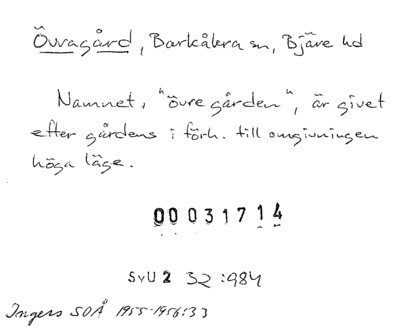 Övragård, Barkåkra sn, Bjäre hd
Namnet, "övre gården", är givet
efter gårdens i förh. till omgivningen
höga läge.
00031714
SvU 2 32:984
Ingers SOÅ 1955-1956:33